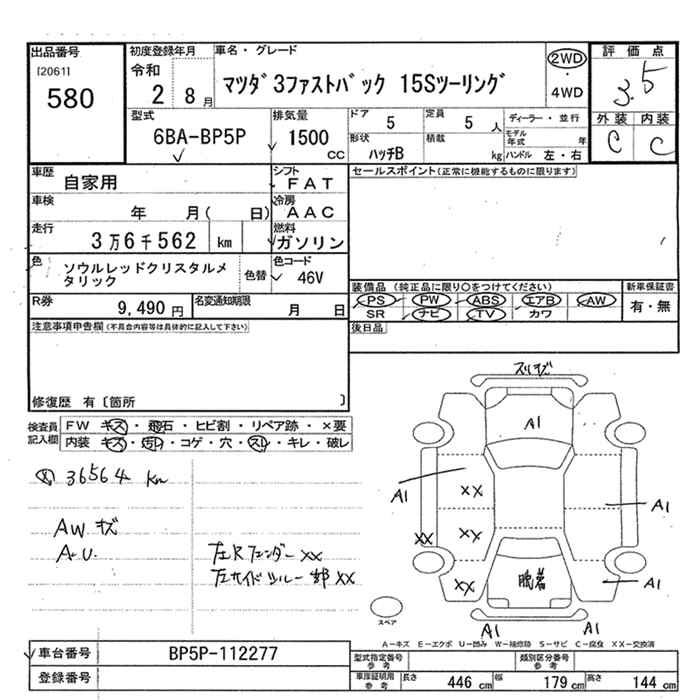 出品番号
[2061]
580
初度登録年月
令和
2 8月
車名・グレード
マツダ3ファストバック 15Sツーリング
2WD
・
4WD
評価点
3.5
外装 内装
C C
型式
6BA-BP5P
排気量
1500
CC
ドア
5
定員
5 人
形状
ハッチB
積載
kg
ディーラー・並行
モデル年式 年
ハンドル 左・右
車歴
自家用
シフト
FAT
車検
年 月( 日)
冷房
AAC
走行
3万6千562 km
燃料
ガソリン
色
ソウルレッドクリスタルメタリック
色替
色コード
46V
R券
9,490円
名変通知期限
月 日
セールスポイント(正常に機能するものに限ります)
装備品 (純正品に限り○をつけてください)
PS PW ABS エアB AW
SR ナビ TV カワ
新車保証書
有・無
後日品
注意事項申告欄(不具合内容等は具体的に記入して下さい)
修復歴 有〔箇所 〕
検査員記入欄
FW キズ・飛石・ヒビ割・リペア跡・×要
内装 キズ・汚レ・コゲ・穴・スレ・キレ・破レ
36564 km
AW キズ
A・U
左Rフェンダー XX
左サイドシルー部 XX
スリキズ
A1
A1
XX
A1
XX
XX
XX
脱着
A1
A1
A1
スペア
A−キズ E−エクボ U−凹み W−補修跡 S−サビ C−腐食 XX−交換済
車台番号
BP5P-112277
登録番号
型式指定番号
参考
類別区分番号
参考
車庫証明用
参考
長さ 446 cm
幅 179 cm
高さ 144 cm